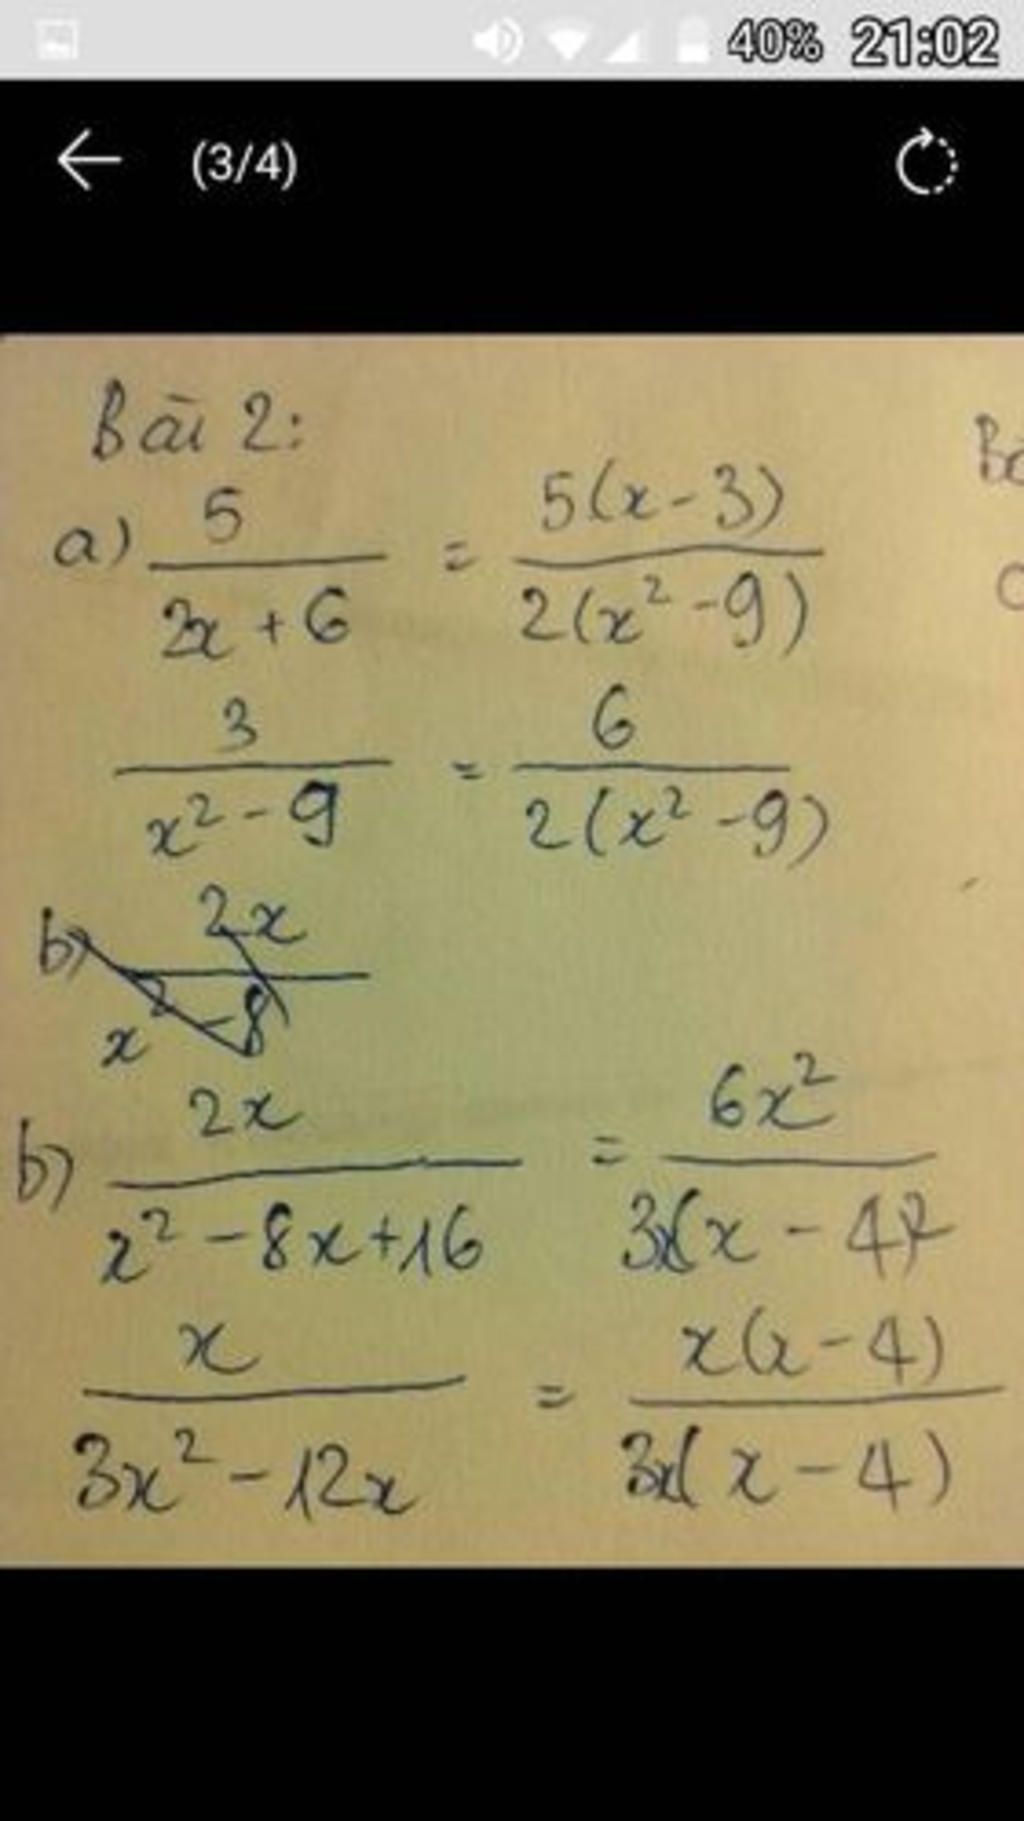 40% 21:02
(3/4)
Bài 2:
a) 5/(2x + 6) = 5(x - 3)/2(x² - 9)
3/(x² - 9) = 6/2(x² - 9)
b) 2x/(x² - 8)
b) 2x/(x² - 8x + 16) = 6x²/3x(x - 4)²
x/(3x² - 12x) = x(x - 4)/3x(x - 4)